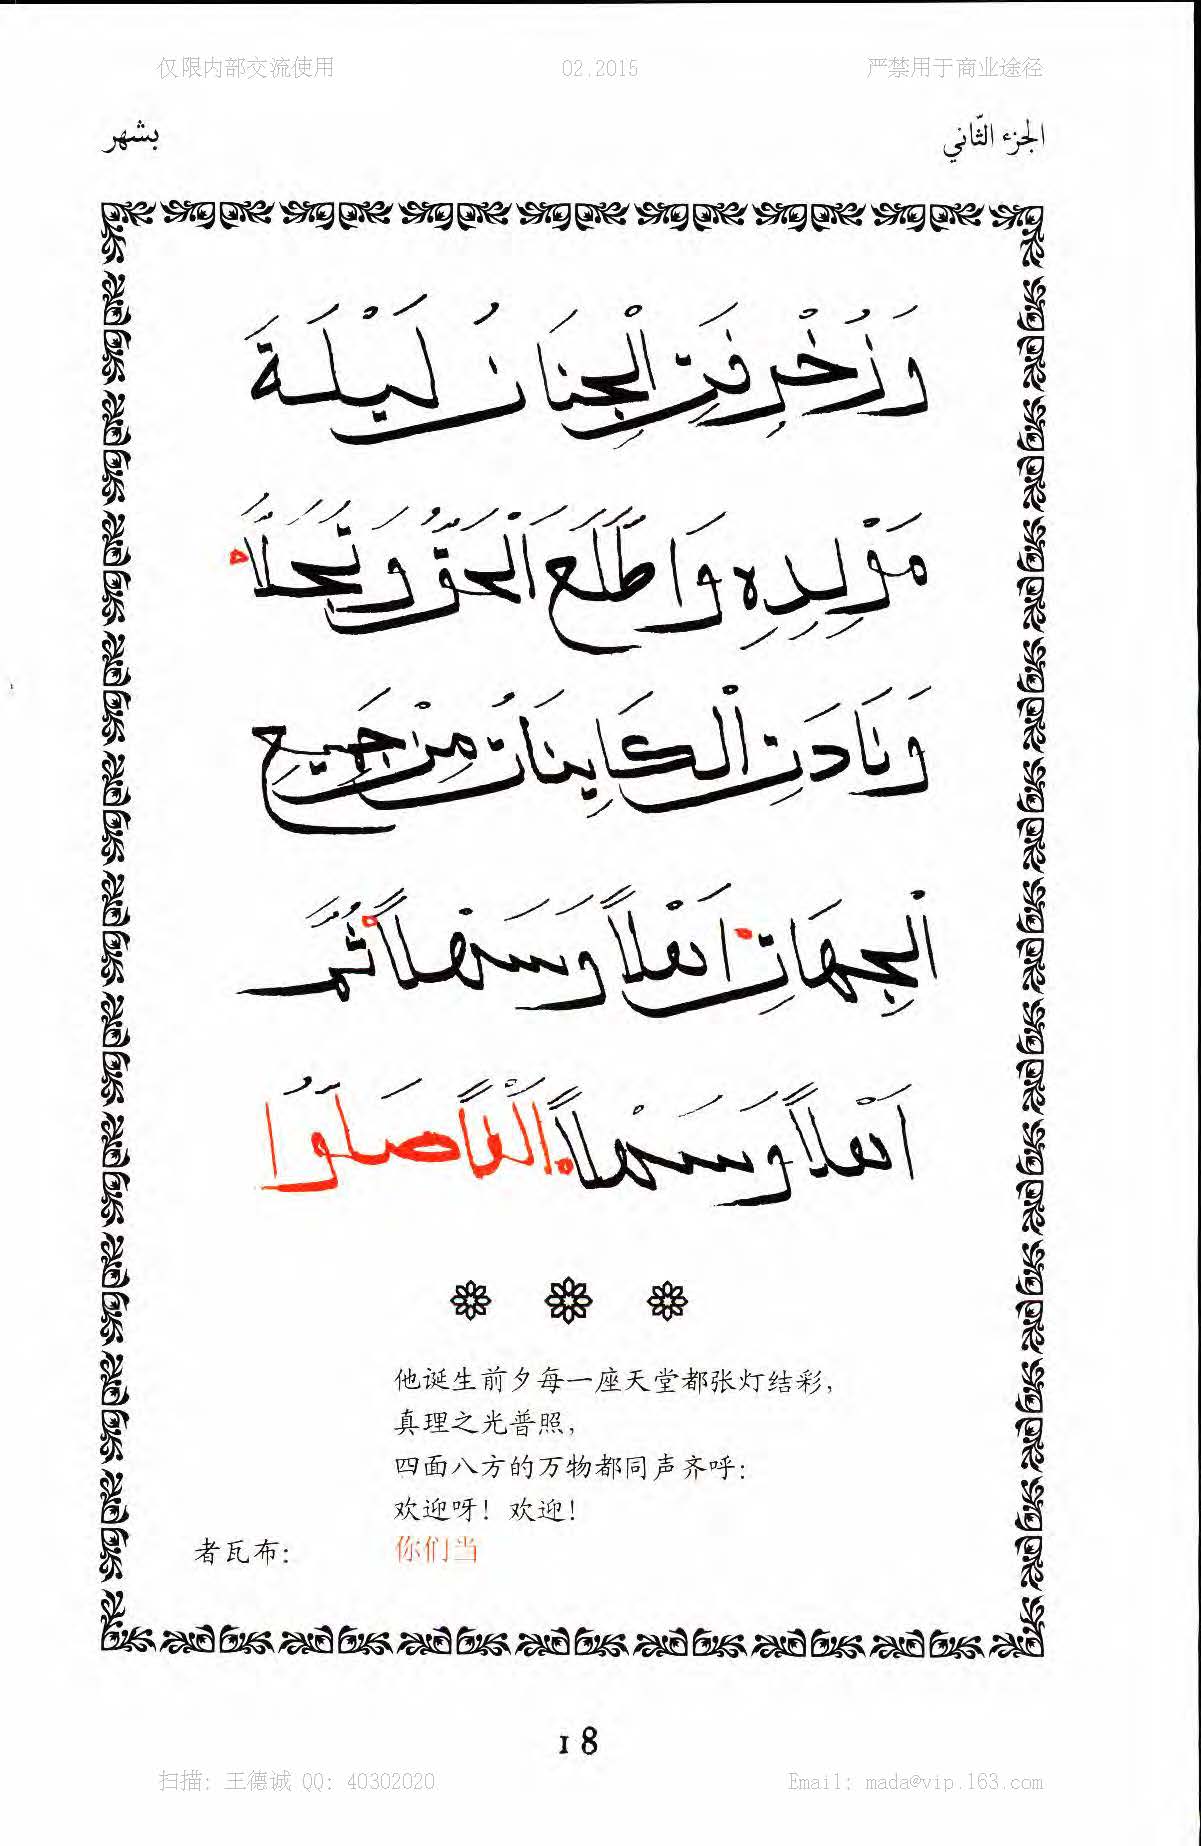 仅限内部交流使用 02.2015 严禁用于商业途径
الجزء الثّاني بشهر
وَزُخْرِفَتِ الْجِنَانُ لَيْلَةَ
مَوْلِدِهِ وَاطَّلَعَ الْحَقُّ وَتَجَلَّا
وَنَادَتِ الْكَايِنَاتُ مِنْ جَمِيعِ
الْجِهَاتِ اَهْلاً وَسَهْلاً ثُمَّ
اَهْلاً وَسَهْلاً اَلْفًا صَلُّوا
他诞生前夕每一座天堂都张灯结彩,
真理之光普照,
四面八方的万物都同声齐呼:
欢迎呀! 欢迎!
者瓦布: 你们当
18
扫描: 王德诚 QQ: 40302020 Email: mada@vip.163.com